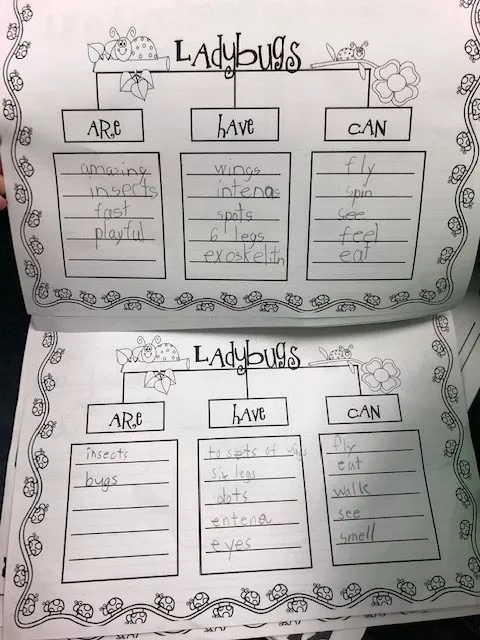 LADYBUGS
ARE
HAVE
CAN
amazing
insects
fast
playful
wings
intenas
spots
6 legs
exoskelitn
fly
spin
see
feel
eat
LADYBUGS
ARE
HAVE
CAN
insects
bugs
to spots of
six legs
dots
entena
eyes
fly
eat
walk
see
smell